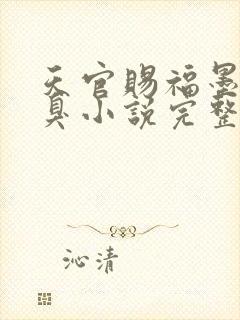 天官賜福墨
臭小說完整
沁清